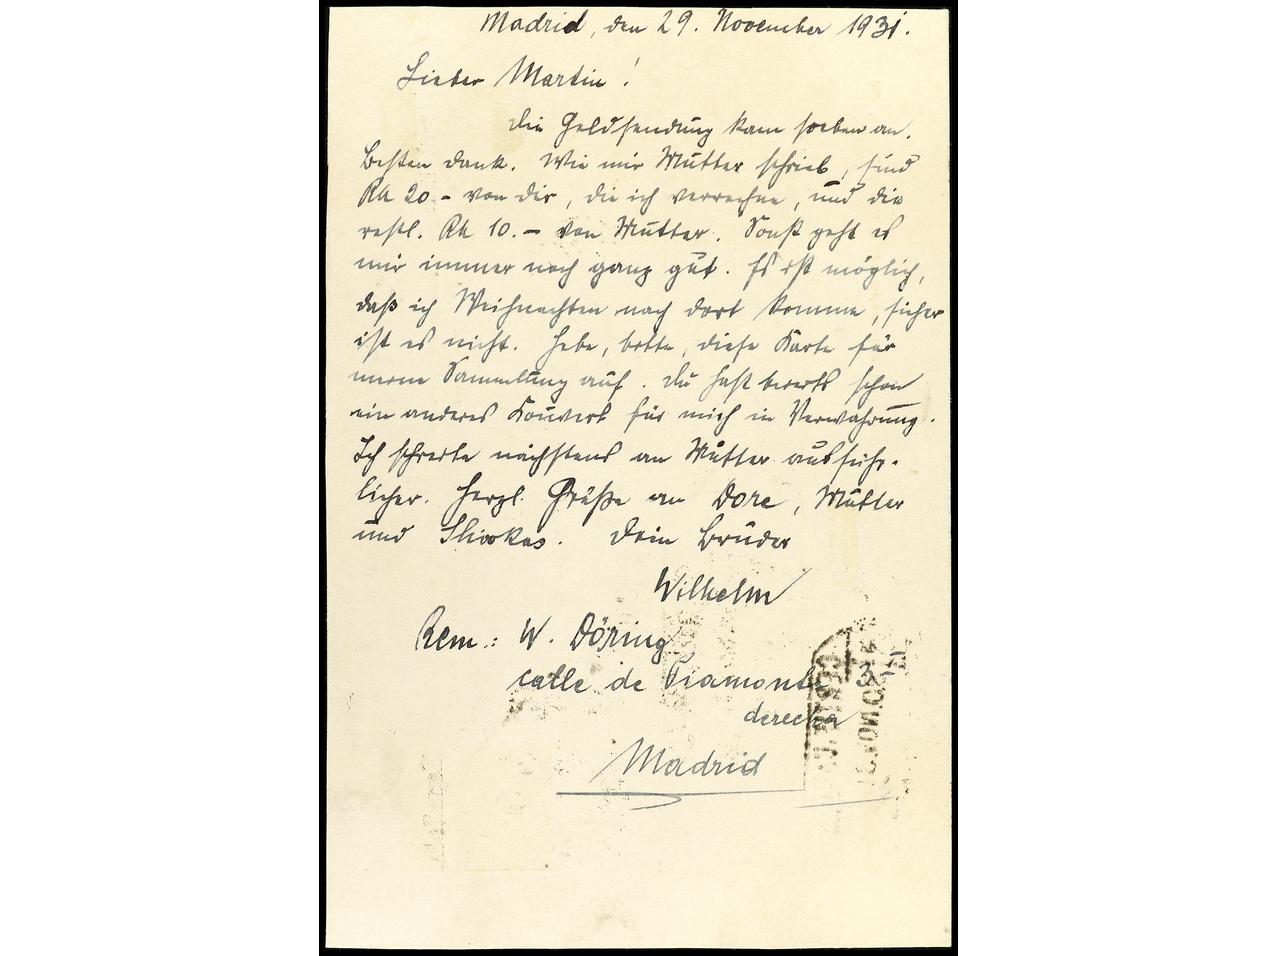 Madrid, den 29. November 1931.
Lieber Martin!
die Geldsendung kam soeben an.
Besten Dank. Wie mir Mutter schrieb, sind
RM 20.- von dir, die ich verrechne, und die
restl. RM 10.- von Mutter. Sonst geht es
mir immer noch ganz gut. Es ist möglich,
daß ich Weihnachten nach dort komme, sicher
ist es nicht. Hebe, bitte, diese Karte für
meine Sammlung auf. Du hast bereits schon
ein anderes Kouvert für mich in Verwahrung.
Ich schreibe nächstens an Mutter ausführ-
licher. Herzl. Grüße an Dore, Mutter
und. Dein Bruder
Wilhelm
Rem.: W. Döring
calle de Piamonte
derecha
Madrid